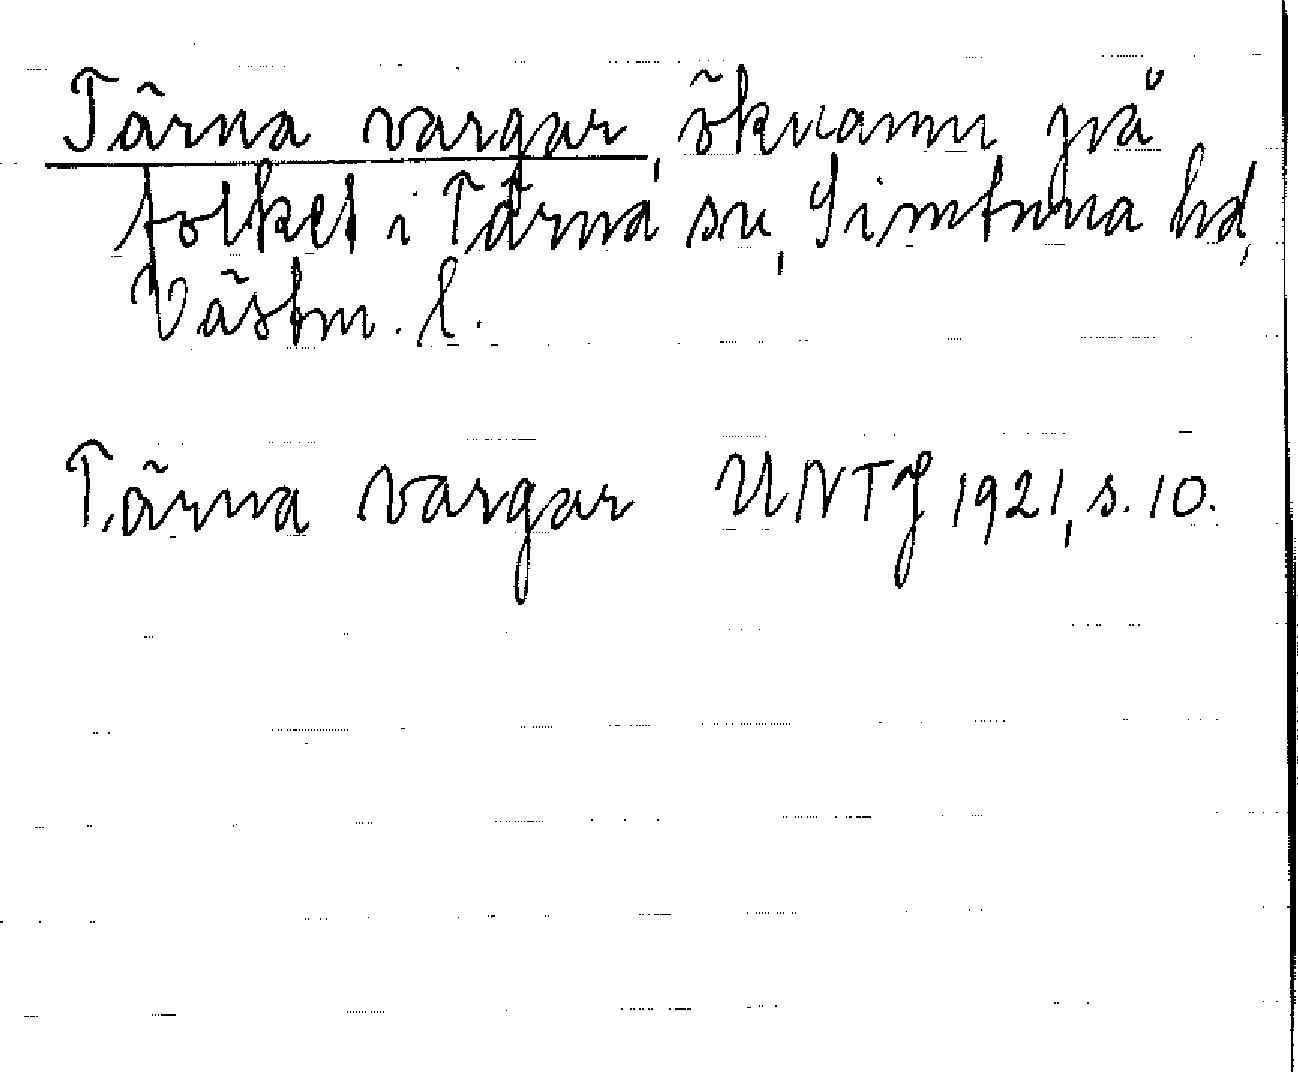 Tärna vargar, öknamn på
folket i Tärna sn, Simtuna hd,
Västm. l.
Tärna vargar UNTJ 1921, s. 10.